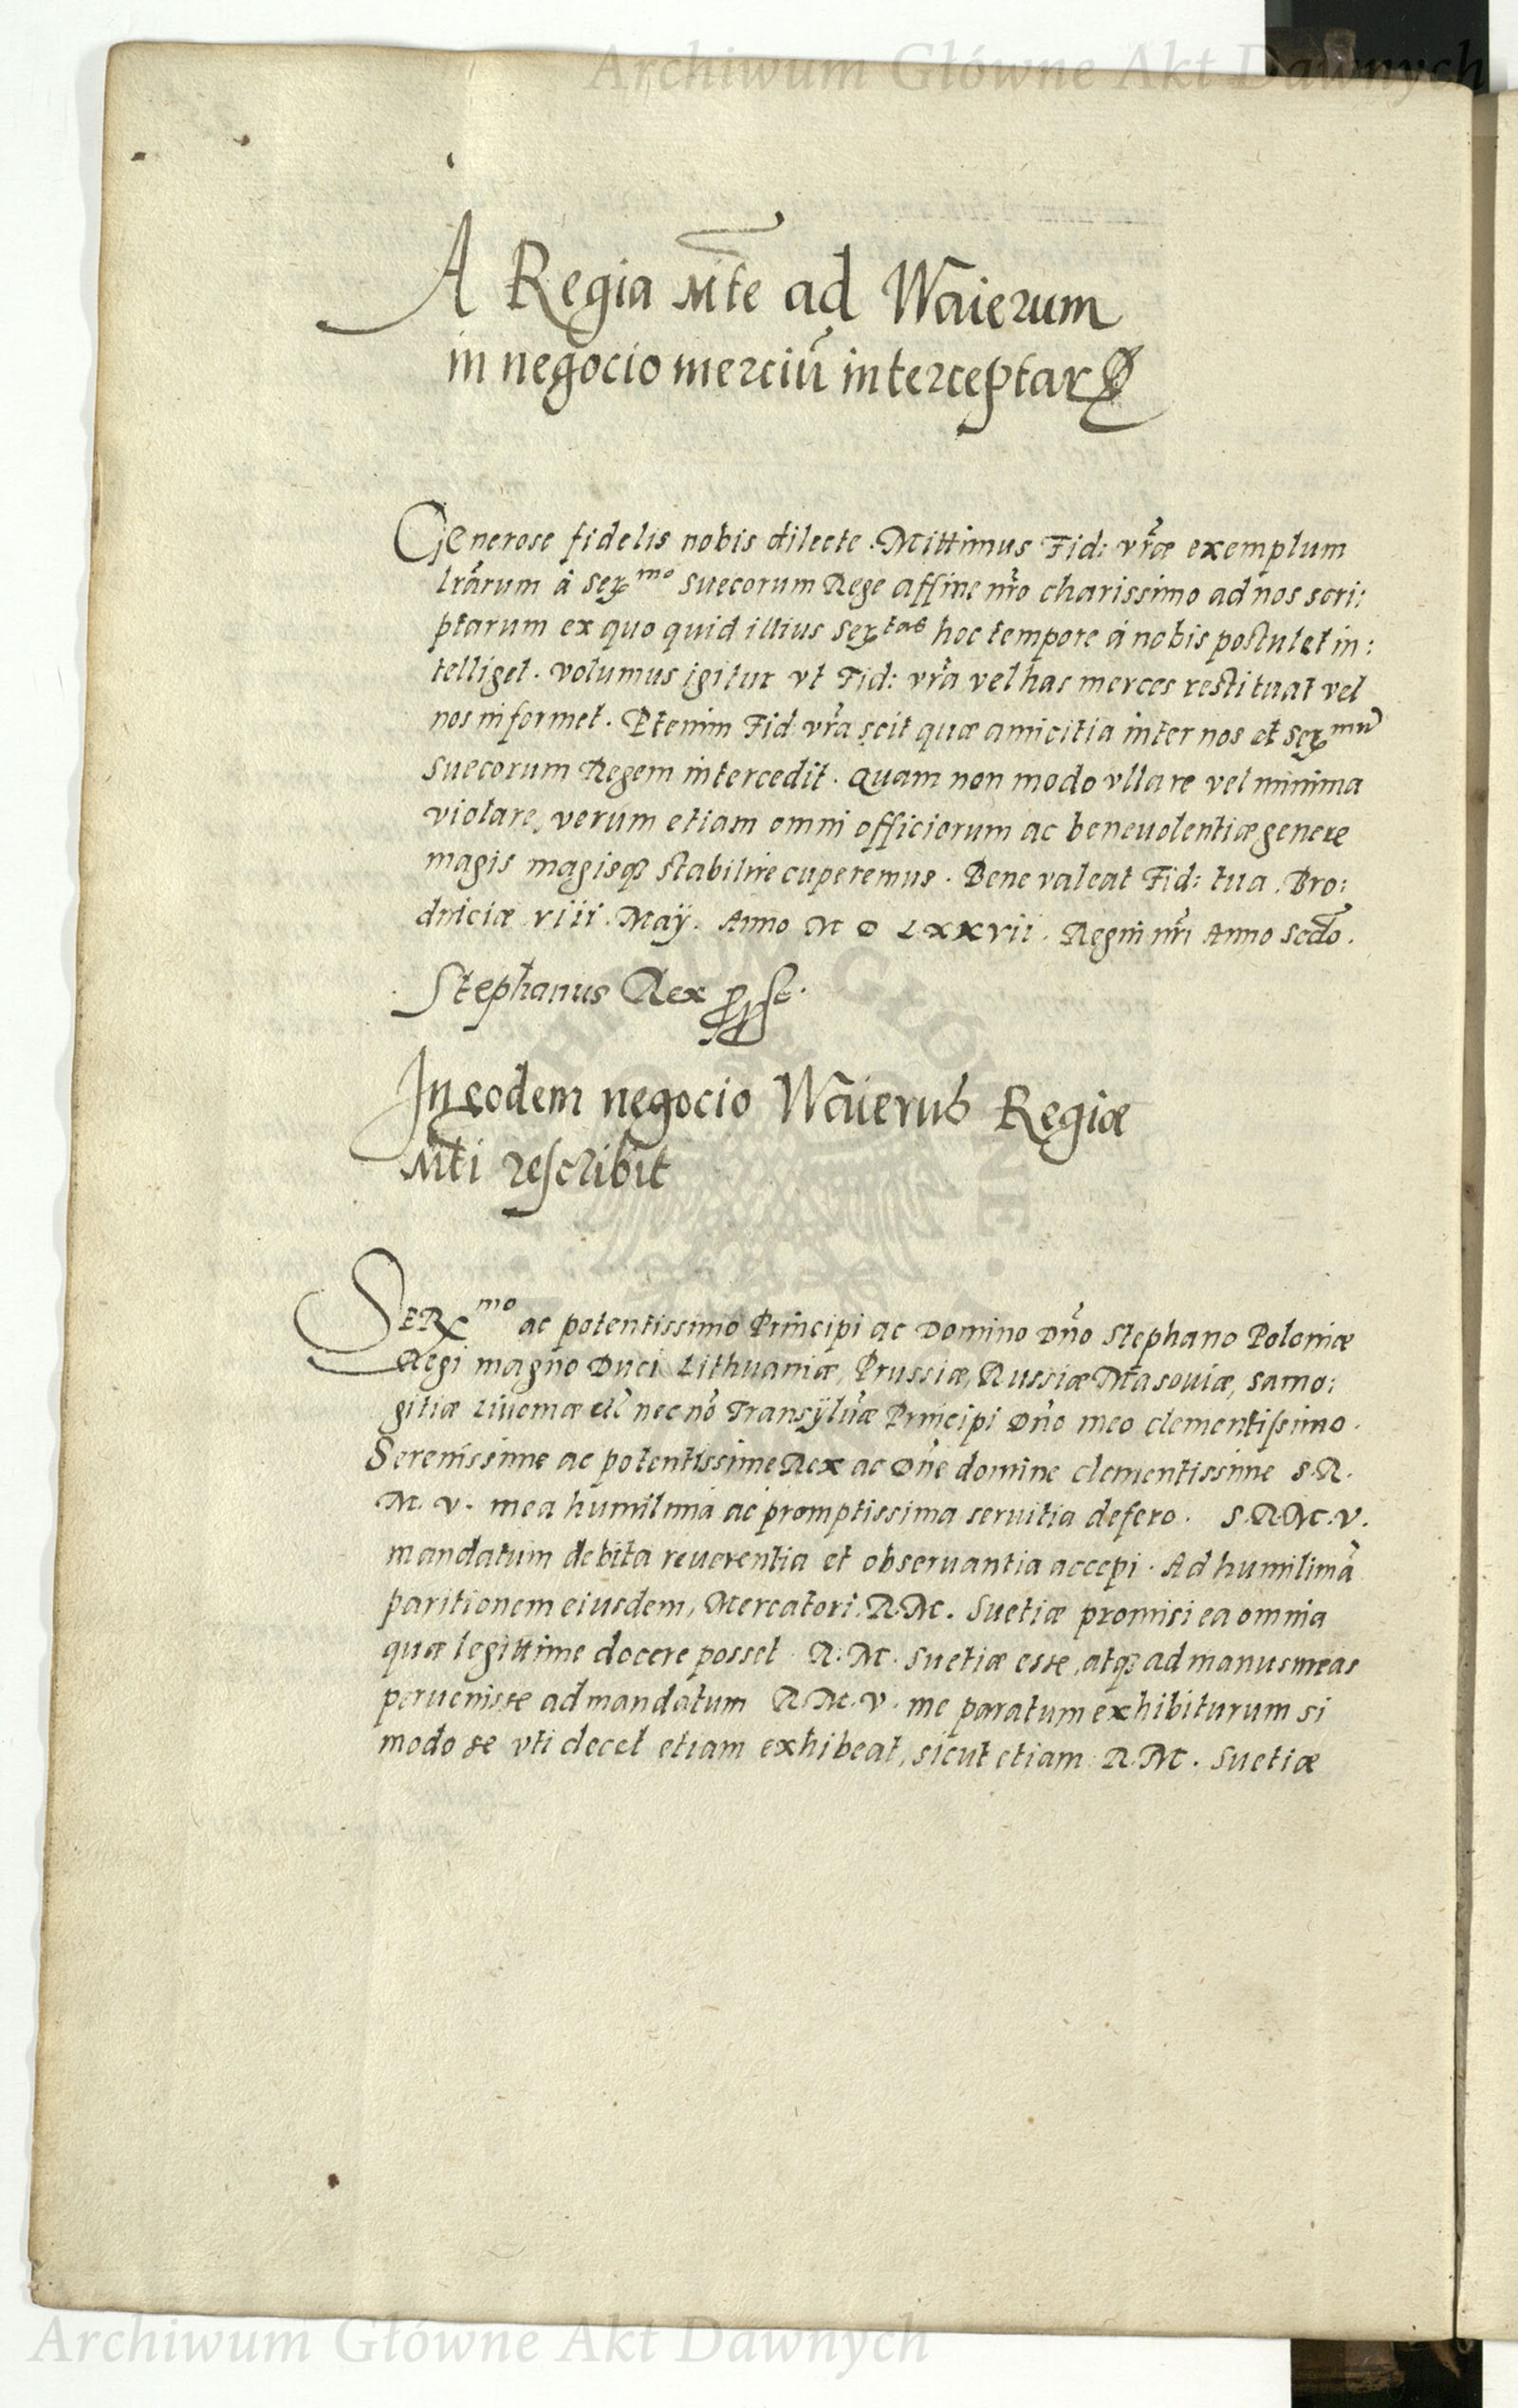 Archiwum Główne Akt Dawnych
A Regia Mt̃e ad Waierum
in negocio merciũ interceptarꝝ
Generose fidelis nobis dilecte. Mittimus Fid: vr̃æ exemplum
lr̃arum à Serᵐᵒ Suecorum Rege affine nr̃o charissimo ad nos scri:
ptarum ex quo quid illius Serᵗᵃˢ hoc tempore à nobis postulet in:
telliget. Volumus igitur vt Fid: vr̃a vel has merces restituat vel
nos informet. Etenim Fid: vr̃a scit quæ amicitia inter nos et Serᵐᵘ̃
Suecorum Regem intercedit. Quam non modo vlla re vel minima
violare, verum etiam omni officiorum ac beneuolentiæ genere
magis magisqꝫ stabilire cuperemus. Bene valeat Fid: tua. Bro:
dniciæ viii. Maÿ. Anno M D LXXVII. Regni nr̃i Anno Secdõ.
Stephanus Rex
In eodem negocio Waierus Regiæ
Mt̃i rescribit
Serᵐᵒ ac potentissimo Principi ac Domino Dño Stephano Poloniæ
Regi magno Duci Lithuaniæ, Prussiæ, Russiæ Masouiæ, Samo:
gitiæ Liuoniæ etc̃ nec nõ Transÿluãæ Principi Dño meo clementissimo.
Serenissime ac potentissime Rex ac Dñe domine clementissime S.R.
M. V. mea humilima ac promptissima seruitia defero. S.R.M.V.
mandatum debita reuerentia et obseruantia accepi. Ad humilimã
paritionem eiusdem, Mercatori R.M. Suetiæ promisi ea omnia
quæ legittime docere posset R.M. Suetiæ esse, atqꝫ ad manus meas
peruenisse ad mandatum R.M.V. me paratum exhibiturum si
modo se vti decet etiam exhibeat, sicut etiam R.M. Suetiæ
Archiwum Główne Akt Dawnych